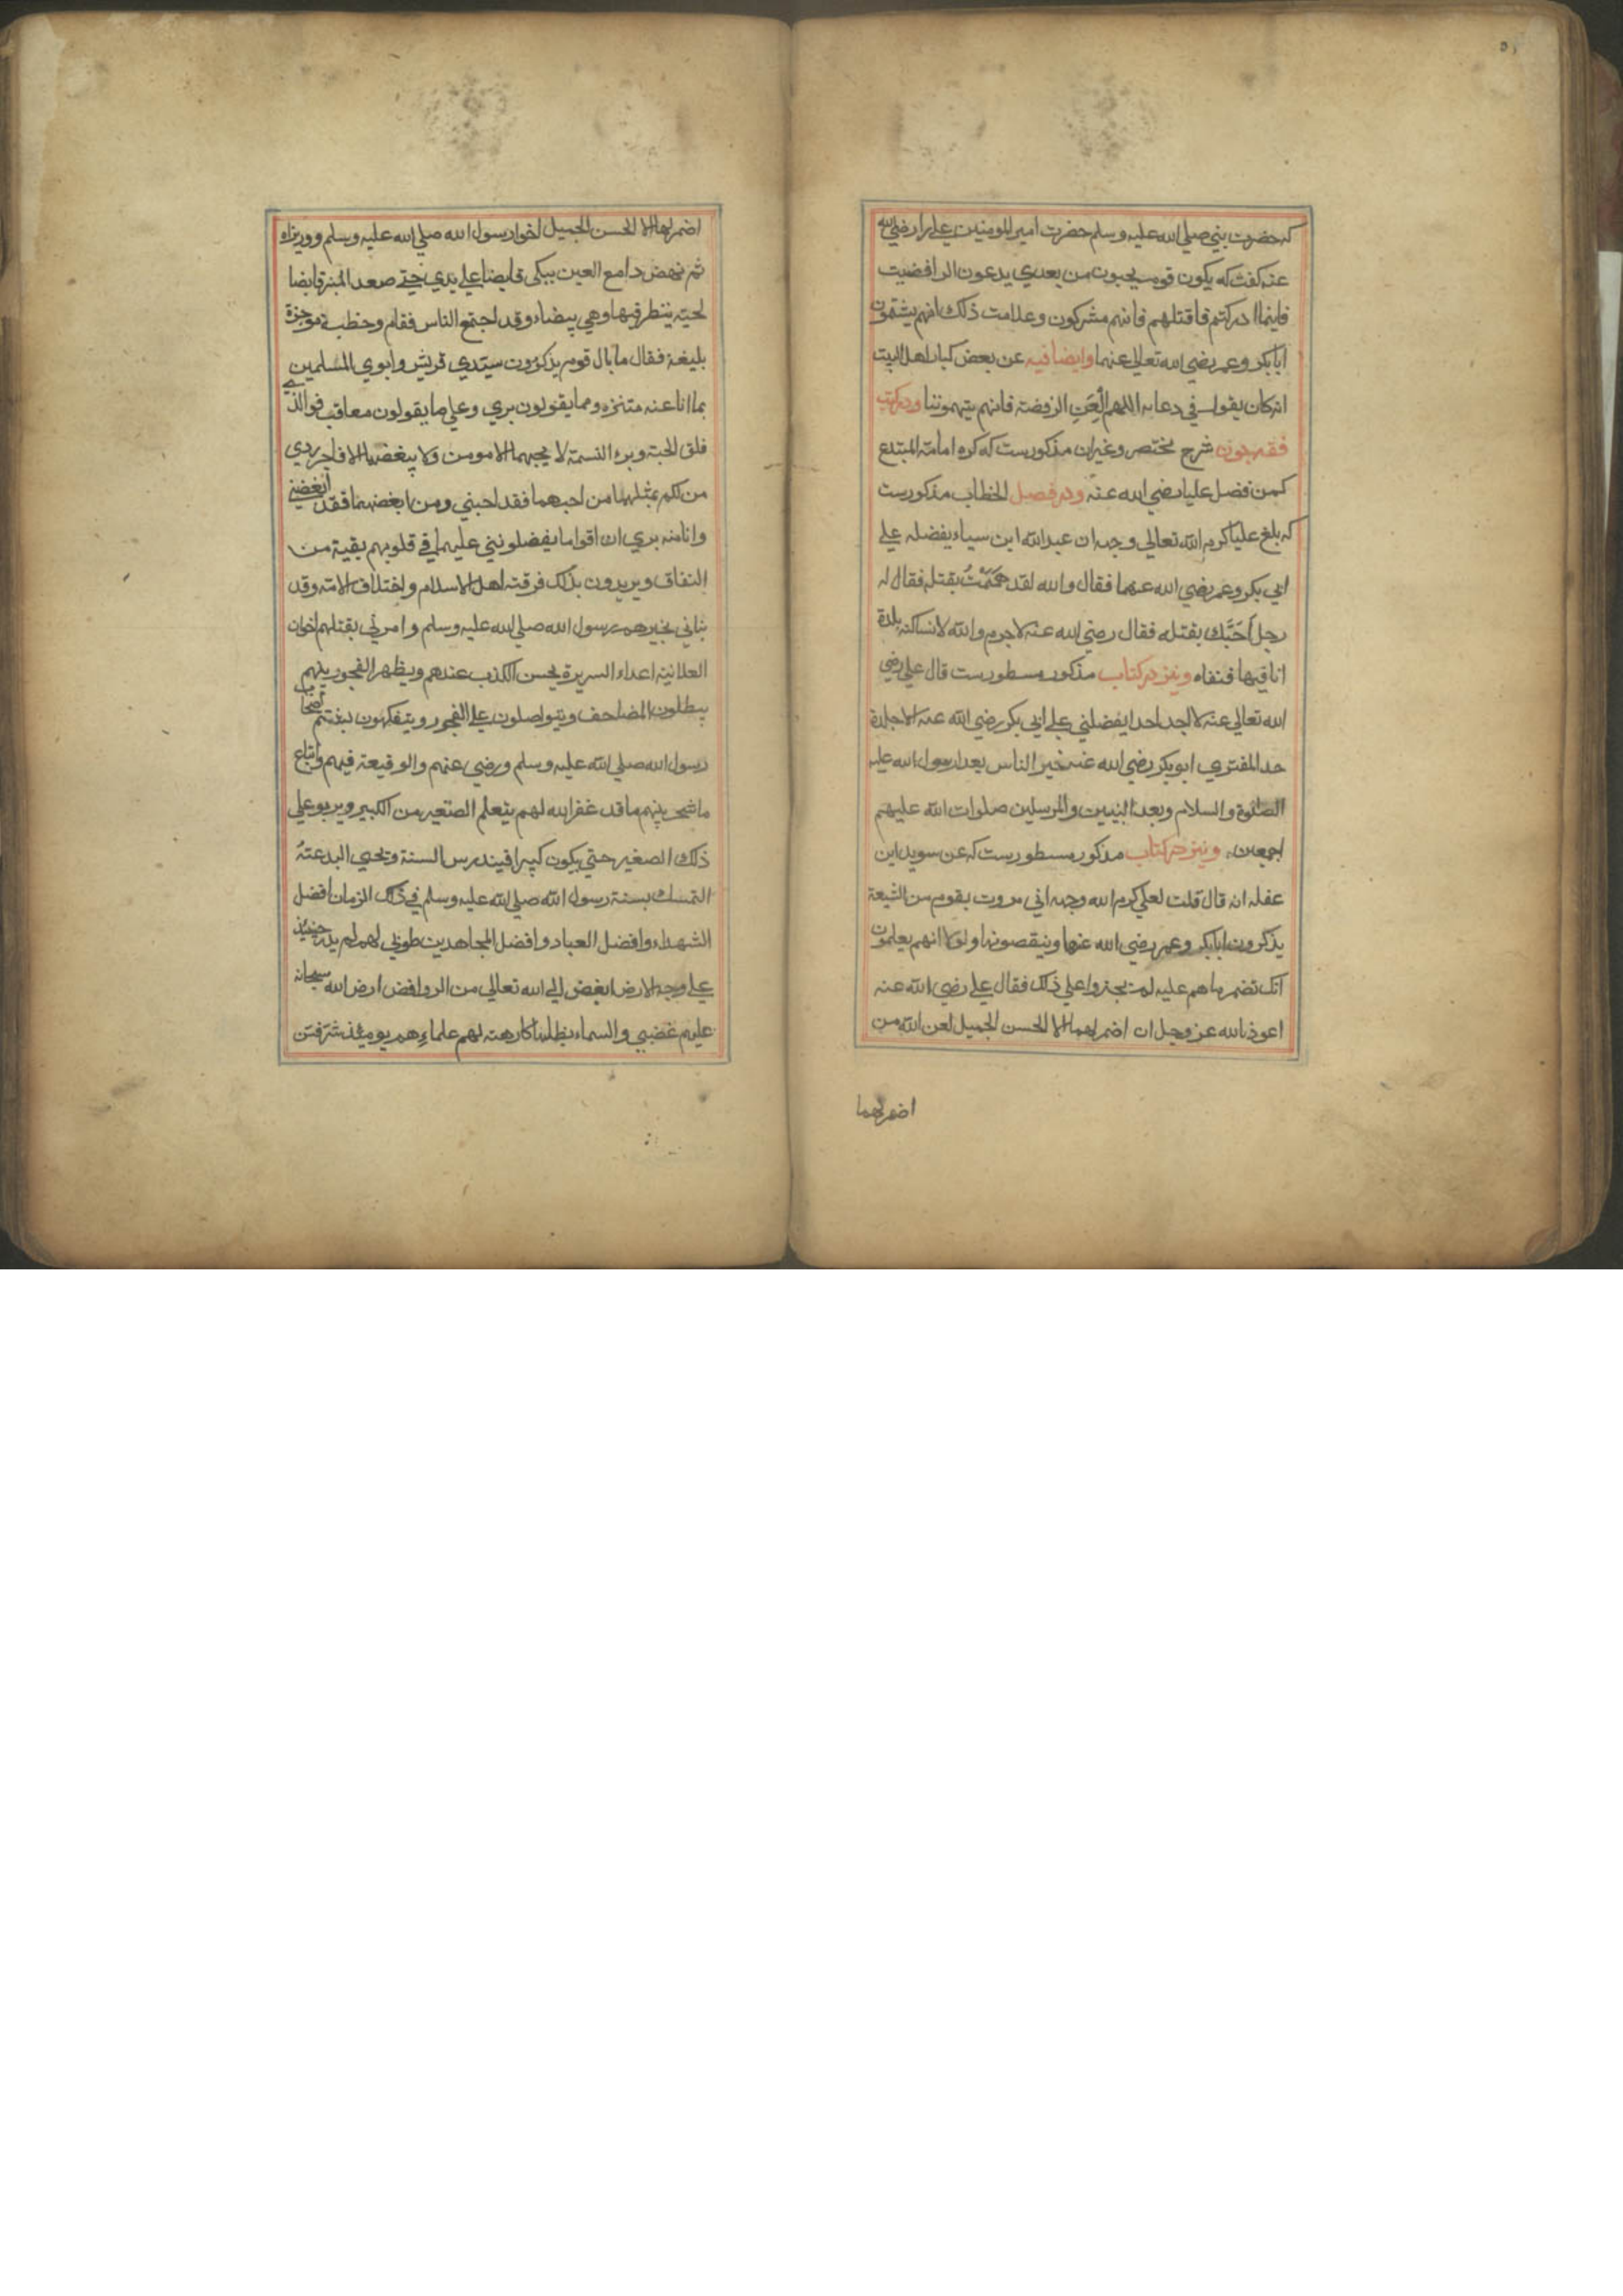 که حضرت نبی صلی الله علیه وسلم حضرت امیر المومنین علی را رضی الله
عنه گفت که یکون قوم یجیون من بعدی یدعون الرافضیت
فاینما ادرکتم فاقتلهم فانهم مشرکون وعلامت ذلک انهم یشتمون
ابابکر وعمر رضی الله تعالی عنهما وایضا فیه عن بعض کبار اهل البیت
انه کان یقول فی دعایه اللهم العن الرفضة فانهم یتهموننا ودر کتب
فقه چون شرح مختصر وغیران مذکورست که کره امامة المبتدع
کمن فضل علیا رضی الله عنه ودر فصل الخطاب مذکورست
که بلغ علیا کرم الله تعالی وجهه ان عبدالله ابن سباء یفضله علی
ابی بکر وعمر رضی الله عنهما فقال والله لقد هممت بقتله فقال له
رجل احبک بقتله فقال رضی الله عنه لاجرم والله لا نساکنه بلدة
انا فیها فنفاه ونیز در کتاب مذکور مسطورست قال علی رضی
الله تعالی عنه لا اجد احدا یفضلنی علی ابی بکر رضی الله عنه الا جلدة
حد المفتری ابوبکر رضی الله عنه خیر الناس بعد رسول الله علیه
الصلوة والسلام وبعد النبیین والمرسلین صلوات الله علیهم
اجمعین ونیز در کتاب مذکور مسطورست که عن سوید ابن
عفله انه قال قلت لعلی کرم الله وجهه انی مررت بقوم من الشیعة
یذکرون ابابکر وعمر رضی الله عنهما وینقصونها ولولا انهم یعلمون
انک تضمر ما هم علیه لم یجتروا علی ذلک فقال علی رضی الله عنه
اعوذ بالله عز وجل ان اضمر لهما الا الحسن الجمیل لعن الله من
اضمر لهما
اضمر لهما الا الحسن الجمیل اخوا رسول الله صلی الله علیه وسلم ووزیراه
ثم نهض دامع العین یبکی قابضا علی یدی حتی صعد المنبر قابضا
لحیته ینظر فیها وهی بیضاء وقد اجتمع الناس فقام وخطب موجزة
بلیغة فقال ما بال قوم یذکرون سیدی قریش وابوی المسلمین
بما انا عنه متنزه ومما یقولون بری وعلی ما یقولون معاقب فوالذی
فلق الحبة وبرء النسمة لا یحبهما الا مومن ولا یبغضهما الا فاجر ردی
من لکم بمثلهما من احبهما فقد احبنی ومن ابغضهما فقد ابغضنی
وانا منه بری ان اقواما یفضلوننی علیهما فی قلوبهم بقیة من
النفاق ویریدون بذلک فرقة اهل الاسلام واختلاف الامة وقد
نبانی بخبرهم رسول الله صلی الله علیه وسلم وامرنی بقتلهم اخوان
العلانیة اعداء السریرة یحسن الکذب عندهم ویظهر الفجور بینهم
یبطلون المصاحف ویتواصلون علی الفجور ویتفکهون بشتم اصحاب
رسول الله صلی الله علیه وسلم ورضی عنهم والوقیعة فیهم واتباع
ما شجر بینهم ما قد غفر الله لهم یتعلم الصغیر من الکبیر ویربو علی
ذلک الصغیر حتی یکون کبیرا فیندرس السنة وتحیی البدعة
التمسک بسنة رسول الله صلی الله علیه وسلم فی ذلک الزمان افضل
الشهداء وافضل العباد وافضل المجاهدین طوبی لهم لم یدر حینئذ
علی وجه الارض ابغض الی الله تعالی من الروافض ارض الله سبحانه
علیهم غضبی والسماء یظلها کارهة لهم علماءهم یومئذ شر فتن